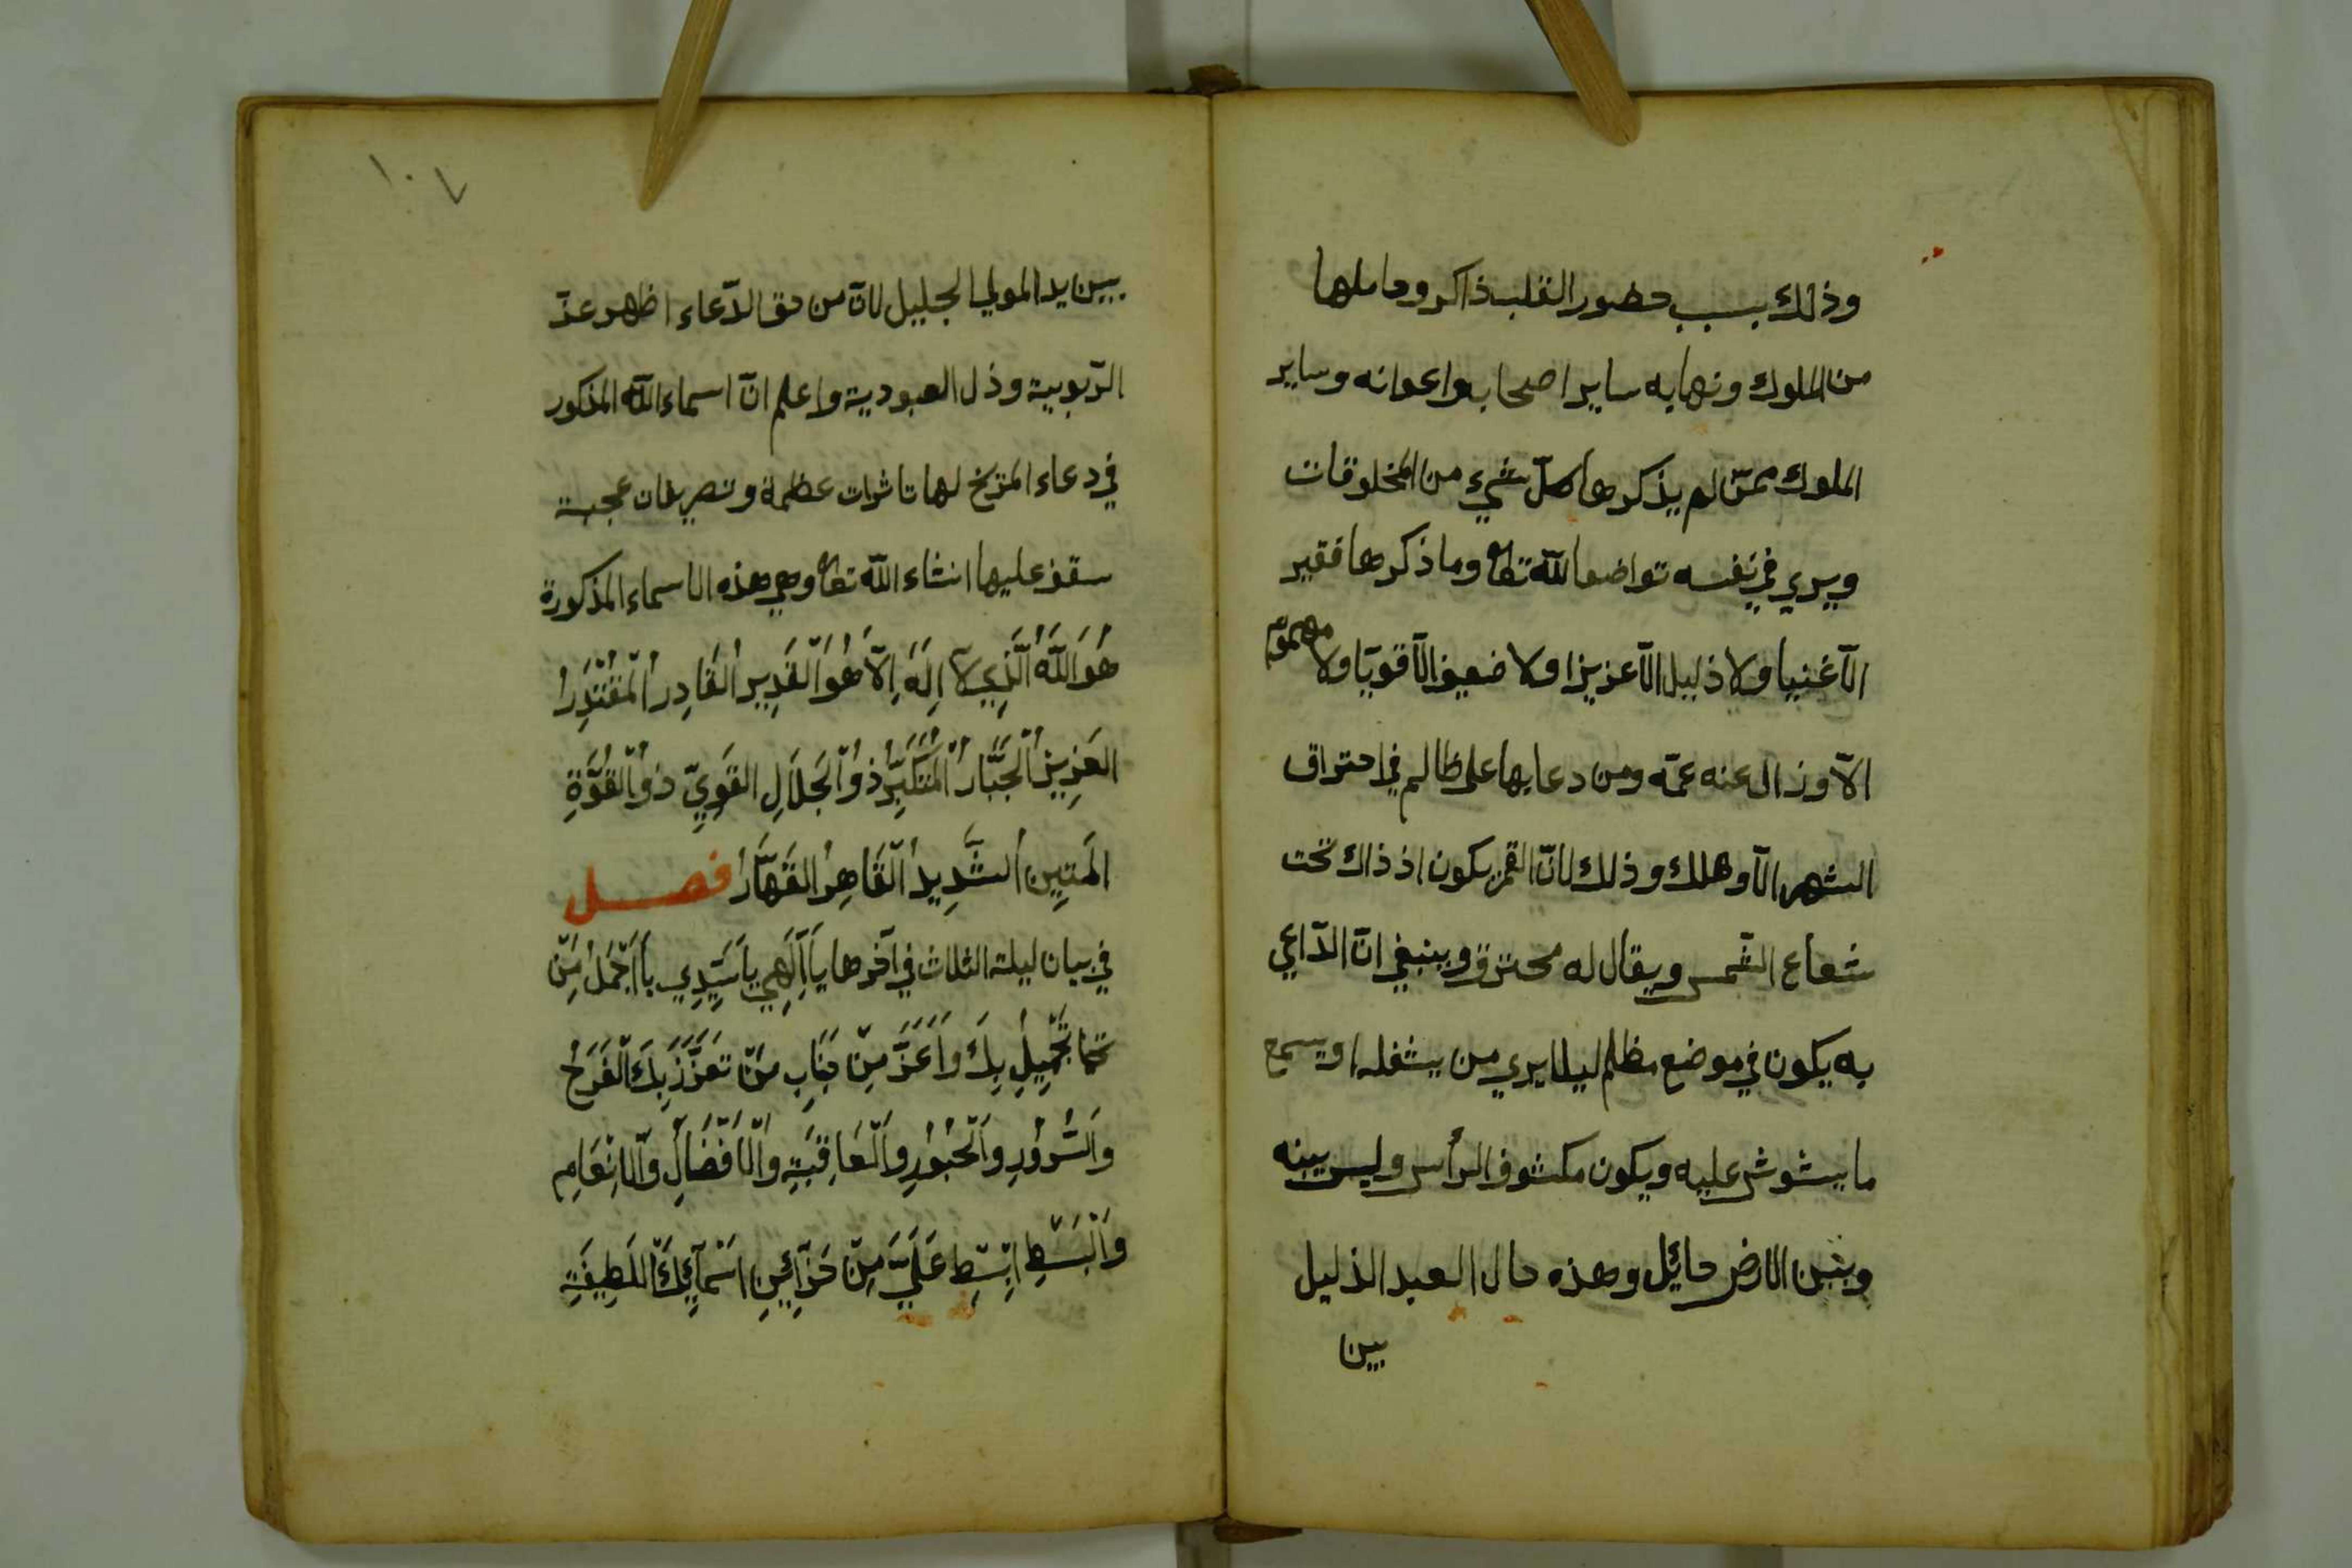 وذلك بسبب حضور القلب ذاكر وحاملها
من الملوك ونهابه ساير اصحابه واعوانه وساير
الملوك ممّن لم يذكرها كلّ شيء من المخلوقات
ويري في نفسه تواضعا للّه تعا وما ذكرها فقير
الّا غنيا ولا ذليل الّا عزيزا ولا ضعيف الّا قويّا ولا مهموم
الّا وزال عنه غمّه ومن دعا بها على ظالم في احتراق
الشهر الّا وهلك وذلك لانّ القمر يكون اذ ذاك تحت
شعاع الشّمس ويقال له محترق وينبغي انّ الدّاعي
به يكون في موضع مظلم ليلا يري من يشغله او يسمع
ما يشوش عليه ويكون مكشوف الرأس وليس بينه
وبين الارض حائل وهذه حال العبد الذليل
بين
١٠٧
بين يد المولي الجليل لانّ من حق الدّعاء اظهر عزّ
الرّبوبية وذل العبودية واعلم انّ اسماء اللّه المذكور
في دعاء المرّيخ لها تاثرات عظمة وتصريفات عجبة
سقف عليها انشاء اللّه تعا وهي هذه الاسماء المذكورة
هُوَ اللَّهُ الَّذِي لَا اِلَهَ اِلَّا هُوَ الْقَدِيرُ الْقَادِرُ الْمُقْتَدِرُ
الْعَزِيزُ الْجَبَّارُ الْمُتَكَبِّرُ ذُو الْجَلَالِ الْقَوِيِّ ذُو الْقُوَّةِ
الْمَتِينُ الشَّدِيدُ الْقَاهِرُ الْقَهَّارُ فصل
في بيان ليلة الثلاث في آخرها يَا اِلَهِي يَا سَيِّدِي يَا اَجْمَلُ مِنْ
تَجَمِيلِ بِكَ وَاَعَزَّ مِنْ جَنَابِ مَنْ تَعَزَّزَ بِكَ الْفَرَحُ
وَالسُّرُورِ وَالْحُبُورِ وَالْعَافِيَةِ وَالْاَفْضَالِ وَالْاِنْعَامِ
وَالْبَسْطِ اِبْسِطِ عَلَيَّ مِنْ خَزَآئِنِ اَسْمَآئِكَ اللَطِيفَةِ